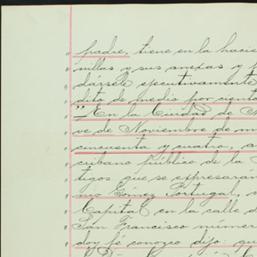 padre, tiene en la hacie
nillas y sus anexas y p
dársele ejecutivamente
dito de medio por ciento
"En la Ciudad de M
ve de Noviembre de m
cincuenta y cuatro, a
cribano público de la
tigos que se expresarán
nio Gómez Portugal,
Capital en la calle d
San Francisco númer
doy fé conozco dijo: qu